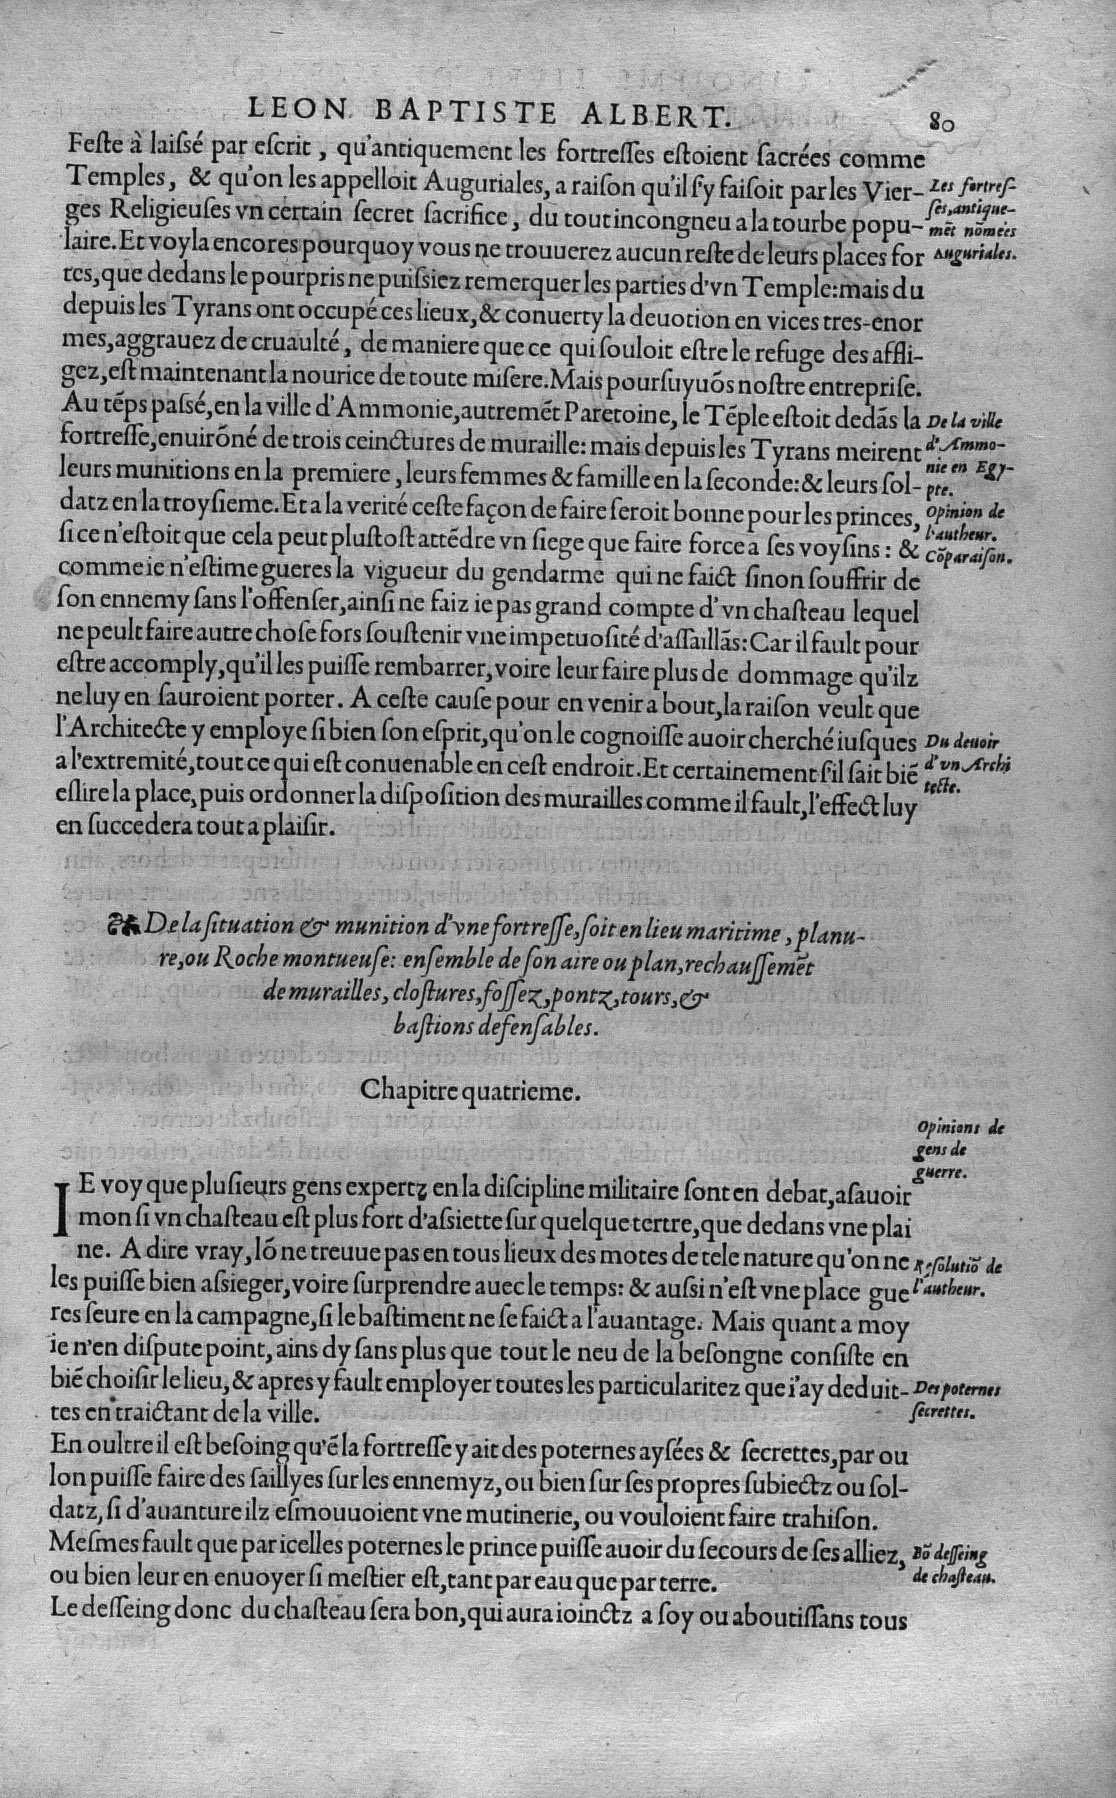 LEON BAPTISTE ALBERT. 80
Feste à laissé par escrit, qu'antiquement les fortresses estoient sacrées comme
Temples, & qu'on les appelloit Auguriales, a raison qu'il s'y faisoit par les Vier-
ges Religieuses vn certain secret sacrifice, du tout incongneu a la tourbe popu-
laire. Et voyla encores pourquoy vous ne trouuerez aucun reste de leurs places for
tes, que dedans le pourpris ne puissiez remerquer les parties d'vn Temple: mais du
depuis les Tyrans ont occupé ces lieux, & conuerty la deuotion en vices tres-enor
mes, aggrauez de cruaulté, de maniere que ce qui souloit estre le refuge des affli-
gez, est maintenant la nourice de toute misere. Mais poursuyuõs nostre entreprise.
Au tẽps passé, en la ville d'Ammonie, autremẽt Paretoine, le Tẽple estoit dedãs la
fortresse, enuirõné de trois ceinctures de muraille: mais depuis les Tyrans meirent
leurs munitions en la premiere, leurs femmes & famille en la seconde: & leurs sol-
datz en la troysieme. Et a la verité ceste façon de faire seroit bonne pour les princes,
si ce n'estoit que cela peut plustost attẽdre vn siege que faire force a ses voysins: &
comme ie n'estime gueres la vigueur du gendarme qui ne faict sinon souffrir de
son ennemy sans l'offenser, ainsi ne faiz ie pas grand compte d'vn chasteau lequel
ne peult faire autre chose fors soustenir vne impetuosité d'assaillãs: Car il fault pour
estre accomply, qu'il les puisse rembarrer, voire leur faire plus de dommage qu'ilz
ne luy en sauroient porter. A ceste cause pour en venir a bout, la raison veult que
l'Architecte y employe si bien son esprit, qu'on le cognoisse auoir cherché iusques
a l'extremité, tout ce qui est conuenable en cest endroit. Et certainement s'il sait biẽ
eslire la place, puis ordonner la disposition des murailles comme il fault, l'effect luy
en succedera tout a plaisir.
Les fortres-
ses, antique-
mẽt nõmées
Auguriales.
De la ville
d'Ammo-
nie en Egy-
pte.
Opinion de
l'autheur.
cõparaison.
Du deuoir
d'vn Archi
tecte.
De la situation & munition d'vne fortresse, soit en lieu maritime, planu-
re, ou Roche montueuse: ensemble de son aire ou plan, rechaussemẽt
de murailles, clostures, fossez, pontz, tours, &
bastions defensables.
Chapitre quatrieme.
IE voy que plusieurs gens expertz en la discipline militaire sont en debat, asauoir
mon si vn chasteau est plus fort d'assiette sur quelque tertre, que dedans vne plai
ne. A dire vray, lõ ne treuue pas en tous lieux des motes de tele nature qu'on ne
les puisse bien assieger, voire surprendre auec le temps: & aussi n'est vne place gue
res seure en la campagne, si le bastiment ne se faict a l'auantage. Mais quant a moy
ie n'en dispute point, ains dy sans plus que tout le neu de la besongne consiste en
biẽ choisir le lieu, & apres y fault employer toutes les particularitez que i'ay deduit-
tes en traictant de la ville.
En oultre il est besoing qu'ẽ la fortresse y ait des poternes aysées & secrettes, par ou
lon puisse faire des saillyes sur les ennemyz, ou bien sur ses propres subiectz ou sol-
datz, si d'auanture ilz esmouuoient vne mutinerie, ou vouloient faire trahison.
Mesmes fault que par icelles poternes le prince puisse auoir du secours de ses alliez,
ou bien leur en enuoyer si mestier est, tant par eau que par terre.
Le desseing donc du chasteau sera bon, qui aura ioinctz a soy ou aboutissans tous
Opinions de
gens de
guerre.
Resolutiõ de
l'autheur.
Des poternes
secrettes.
Bõ desseing
de chasteau.